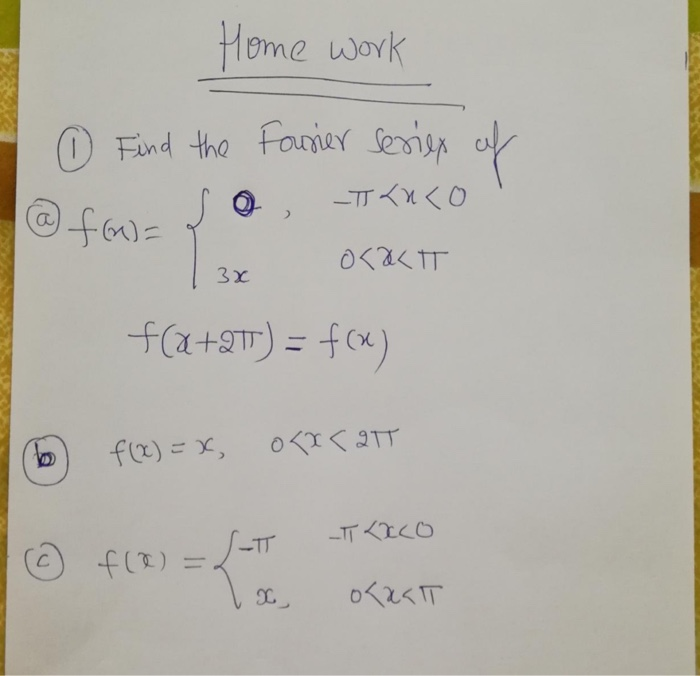 Home work
① Find the Fourier series of
ⓐ f(x) = { 0, -π<x<0
3x 0<x<π
f(x+2π) = f(x)
ⓑ f(x) = x, 0<x<2π
ⓒ f(x) = { -π -π<x<0
x, 0<x<π